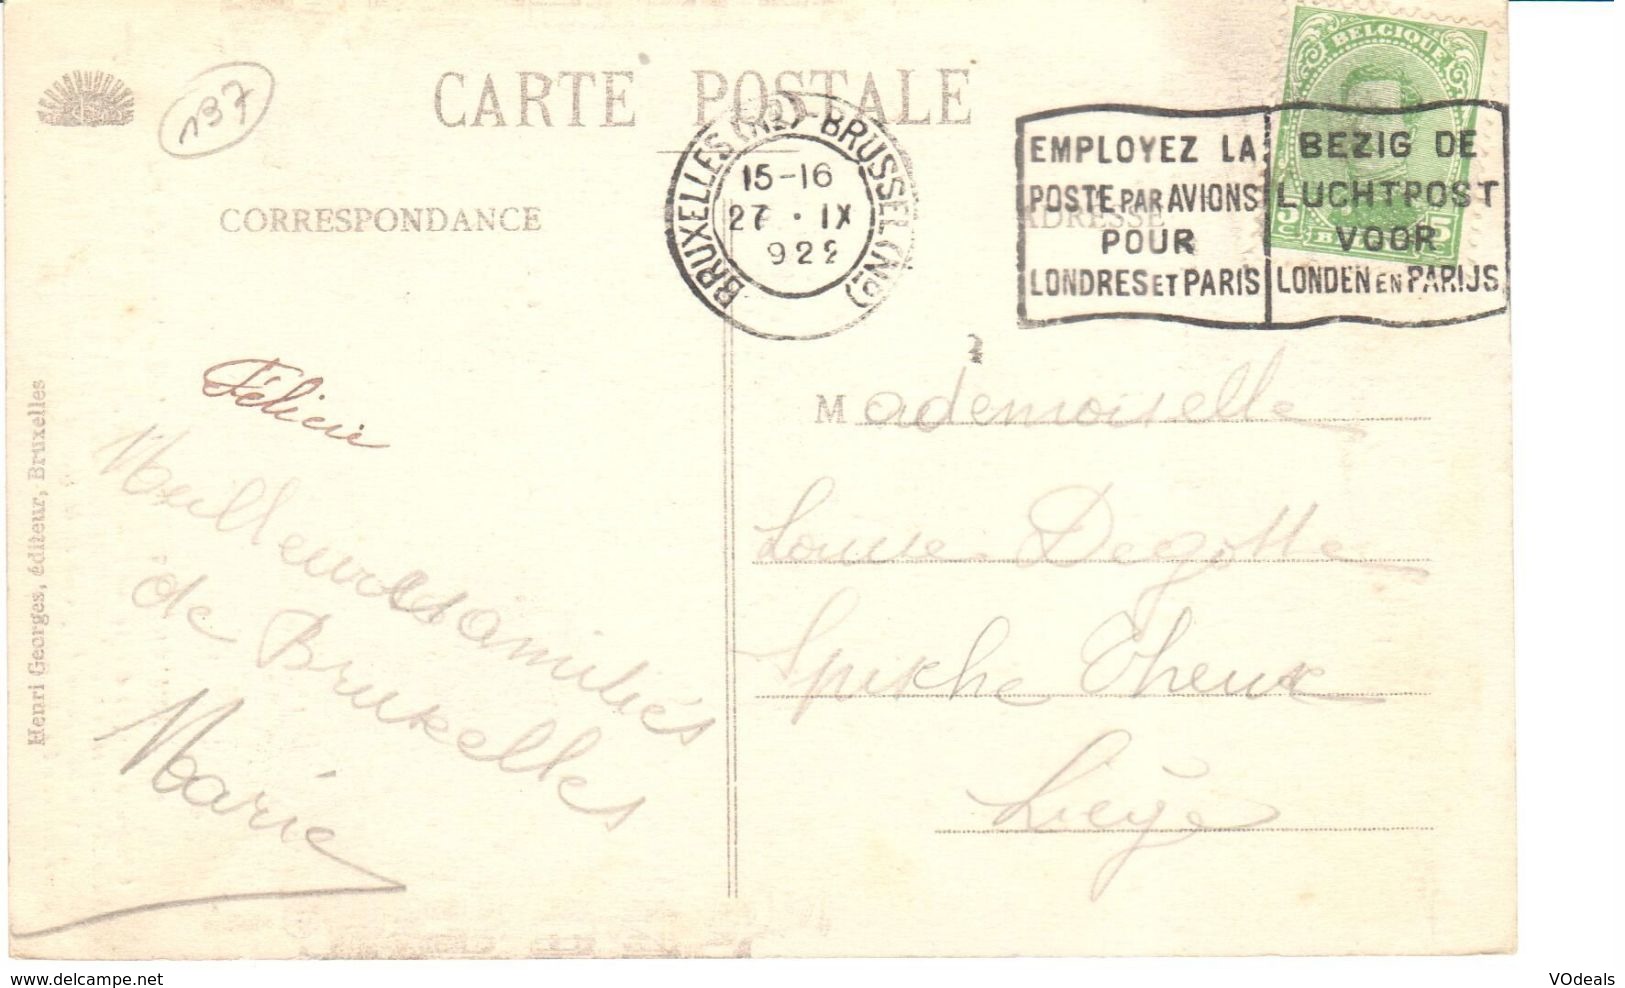 137
CARTE POSTALE
CORRESPONDANCE
ADRESSE
BRUXELLES (N1) - BRUSSEL (Nd)
15-16
27 · IX
922
EMPLOYEZ LA
POSTE PAR AVIONS
POUR
LONDRES ET PARIS
BEZIG DE
LUCHTPOST
VOOR
LONDEN EN PARIJS
BELGIQUE
5 5
Henri Georges, éditeur, Bruxelles
Félicie
Meilleures amitiés
de Bruxelles
Marie
Mademoiselle
Louise Degotte
Spixhe Theux
Liége
www.delcampe.net
VOdeals